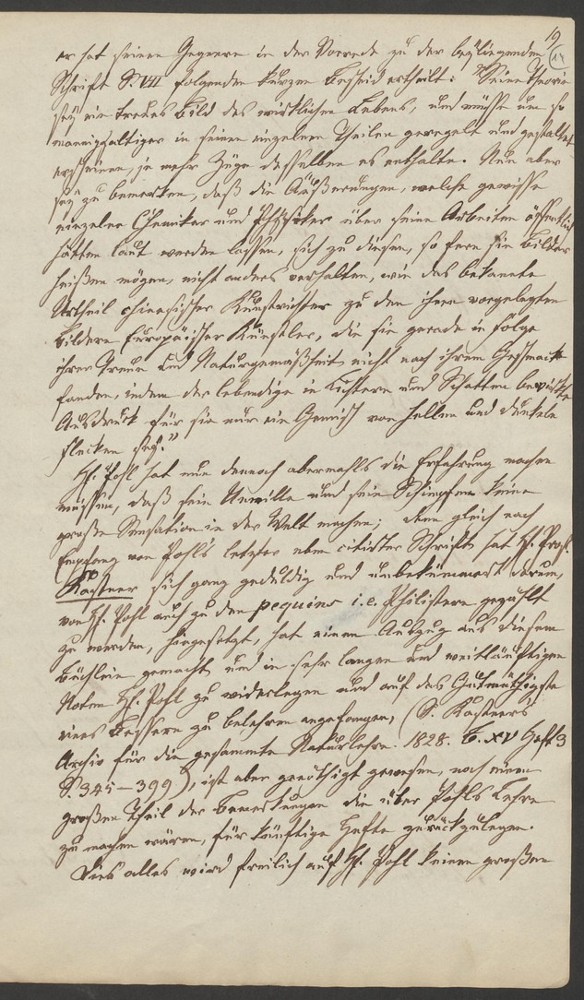 19
14
er hat seinen Gegnern in der Vorrede zu der beyliegenden
Schrift S. VII folgenden kurzen Bescheid ertheilt: "Seine Theorie
sey ein treues Bild des wirklichen Lebens, und müsse um so
mannigfaltiger in seinen einzelnen Theilen geregelt und gestaltet
erscheinen, je mehr Züge desselben es enthalte. Nun aber
sey zu bemerken, daß die Äußerungen, welche gewisse
einzelne Chemiker und Physiker über seine Arbeiten öffentlich
hätten laut werden lassen, sich zu diesen, so fern sie Bilder
heißen mögen, nicht anders verhalten, wie das bekannte
Urtheil chinesischer Kunstrichter zu den ihnen vorgelegten
Bildern Europäischer Künstler, die sie gerade in Folge
ihrer Treue und Naturgemäßheit nicht nach ihrem Geschmack
fanden, indem der lebendige in Lichtern und Schatten bewirkte
Ausdruck für sie nur ein Gemisch von hellen und dunkeln
Flecken sey."
H. Pohl hat nun dennoch abermahls die Erfahrung machen
müssen, daß sein Unwille und sein Schimpfen keine
große Sensation in der Welt machen; denn gleich nach
Empfang von Pohls letzter eben citirter Schrift hat H. Prof.
Kastner sich ganz geduldig und unbekümmert darum,
von H. Pohl auch zu den pequins i.e. Philistern gezählt
zu werden, hingesetzt, hat einen Auszug aus diesem
Büchlein gemacht, und in sehr langen und weitläuftigen
Noten H. Pohl zu widerlegen und auf das Gutmüthigste
eines Bessern zu belehren angefangen, (S. Kastners
Archiv für die gesammte Naturlehre. 1828. B. XV Heft 3
S. 345–399), ist aber genöthigt gewesen, noch einen
großen Theil der Bemerkungen die über Pohls Lehre
zu machen wären, für künftige Hefte zurückzulegen.
Dies alles wird freilich auf H. Pohl keinen großen